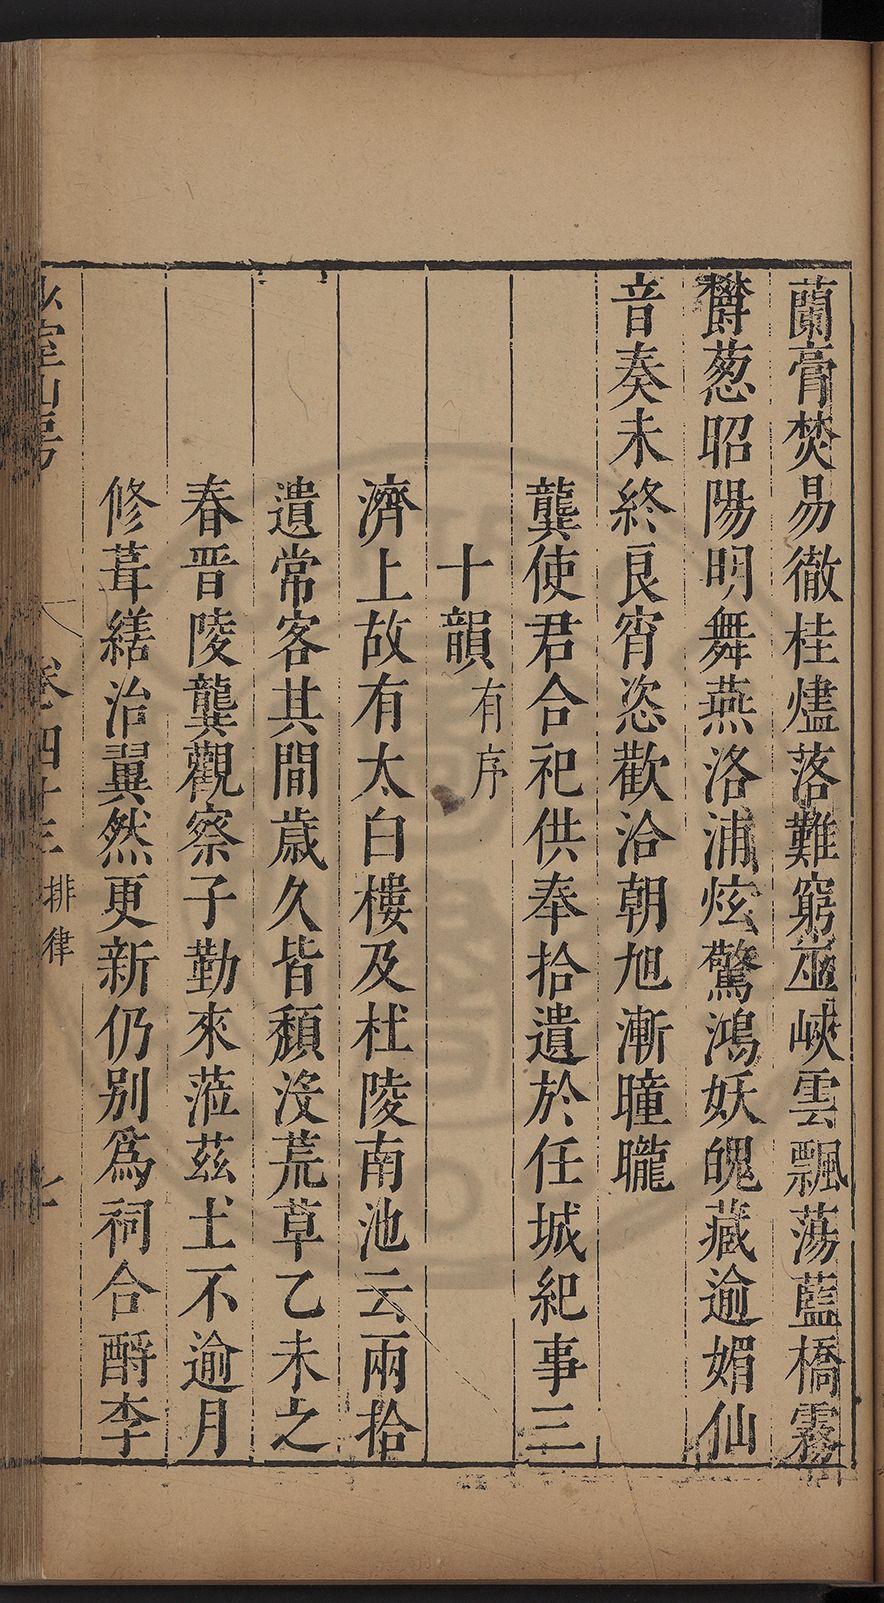 蘭膏焚易徹桂燼落難窮巫峽雲飄蕩藍橋霧
欝葱昭陽明舞燕洛浦炫驚鴻妖魄藏逾媚仙
音奏未終良宵恣歡洽朝旭漸曈曨
龔使君合祀供奉拾遺於任城紀事三
十韻有序
濟上故有太白樓及杜陵南池云兩拾
遺常客其間歲久皆頹沒荒草乙未之
春晉陵龔觀察子勤來蒞茲土不逾月
修葺繕治翼然更新仍别爲祠合酹李
少室山房
卷四十三
排律
七